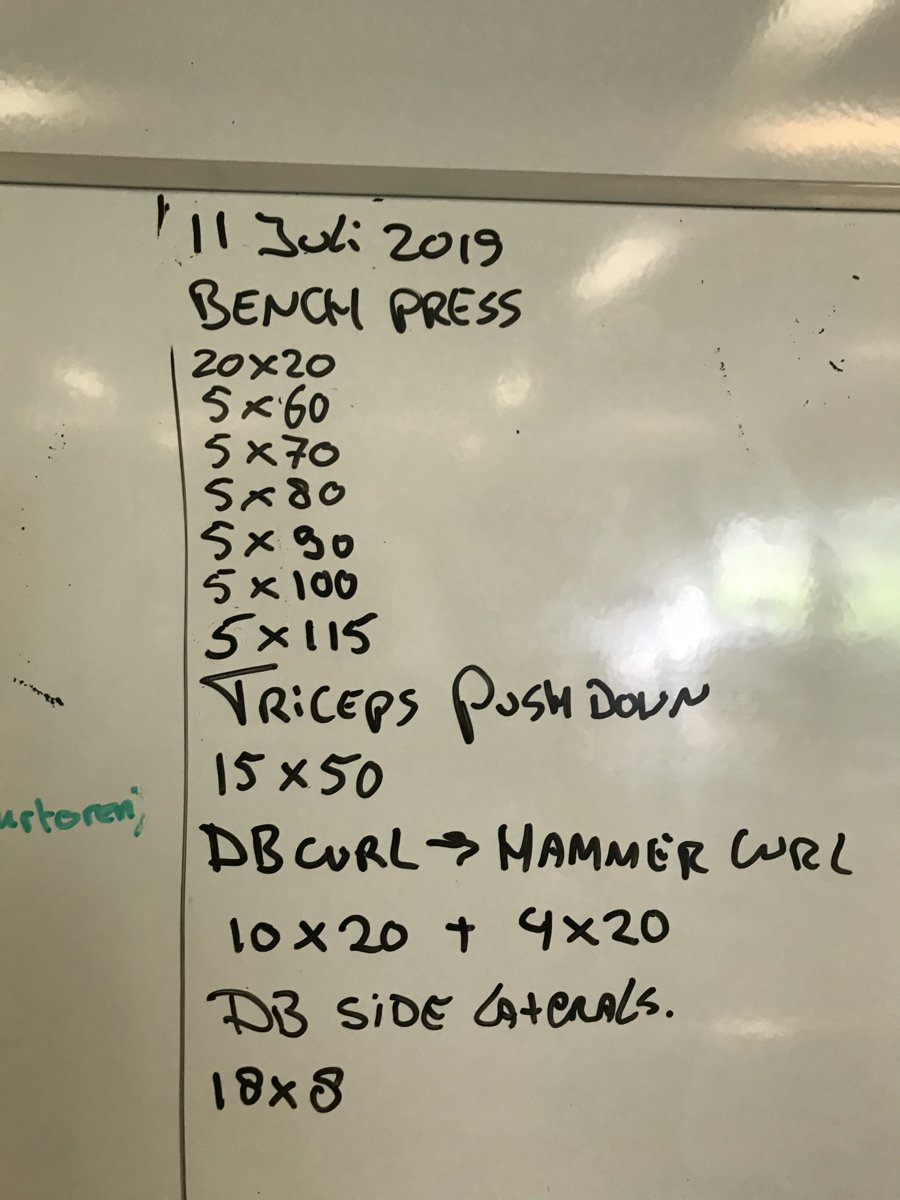 11 Juli 2019
BENCH PRESS
20x20
5x60
5x70
5x80
5x90
5x100
5x115
TRiCEPS PUSH DOWN
15x50
DB CURL → HAMMER CURL
10x20 + 4x20
DB SiDE LAtERALS.
18x8